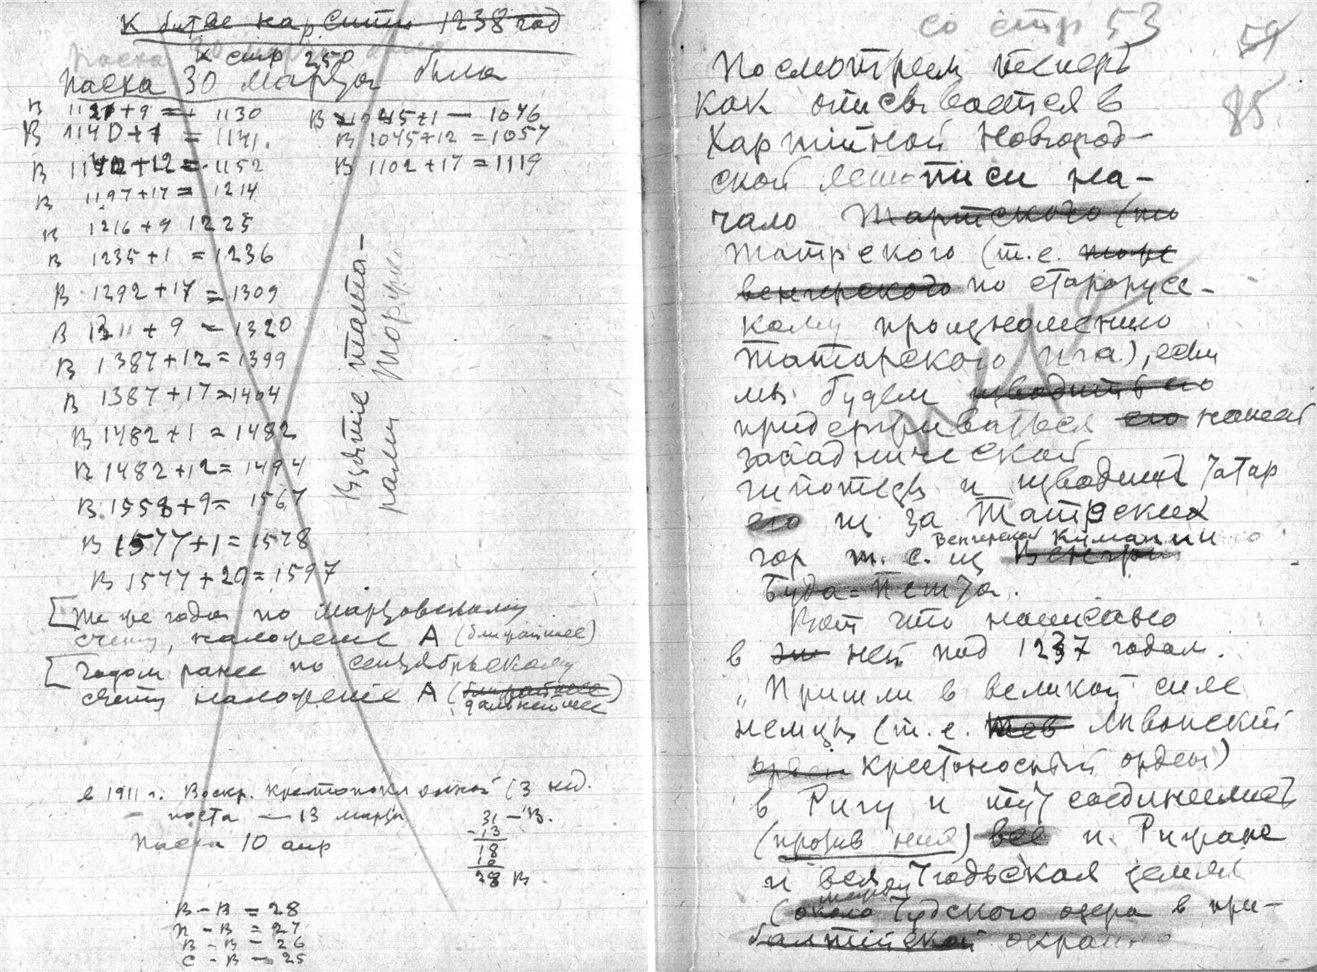 К битве на р. Сити 1238 год
К стр 250
Пасха 30 марта была
В 1121+9 = 1130
В 1140+1 = 1141.
В 1140+12 = 1152
В 1197+17 = 1214
В 1216+9 1225
В 1235+1 = 1236
В 1292+17 = 1309
В 1311+9 = 1320
В 1387+12 = 1399
1387+17 = 1404
В 1482+1 = 1482
В 1482+12 = 1494
В 1558+9 = 1567
В 1577+1 = 1578
В 1577+20 = 1597
В 1045+1 — 1046
В 1045+12 = 1057
В 1102+17 = 1119
Взятие тата-
рами Торжка
[Те же года по мартовскому
счету, наложение А (ближайшее)
[Годом ранее по сентябрьскому
счету наложение А (ближайшее)
дальнейшее
в 1911 г. Воскр. крестопоклонной (3 нед.
поста — 13 марта
Пасха 10 апр
31 — В.
-13
18
10
28 В.
В – В = 28
П – В = 27
В – В – 26
С – В – 25
со стр 53
59
85
Посмотрем теперь
как описывается в
Харатейной Новгород-
ской летописи на-
чало Татрского (по
татрского (т.е.
венгерского по старорус-
скому произношению
татарского ига), если
мы будем изводить его
придерживаться его нашей
западнической
гипотезы и изводить татар
его из за Татрских
гор т. е. из Венгрии
Венгерской Кумании
Буда-Пешта.
Вот что написано
в ней под 1237 годом.
„Пришли в великой силе
немцы (т. е. Ливонский
орден крестоносный ордены)
в Ригу и тут соединились
(против них) все и Рижане
и вся Чудьская земля
(около Чудского озера в при-
балтийской окраине